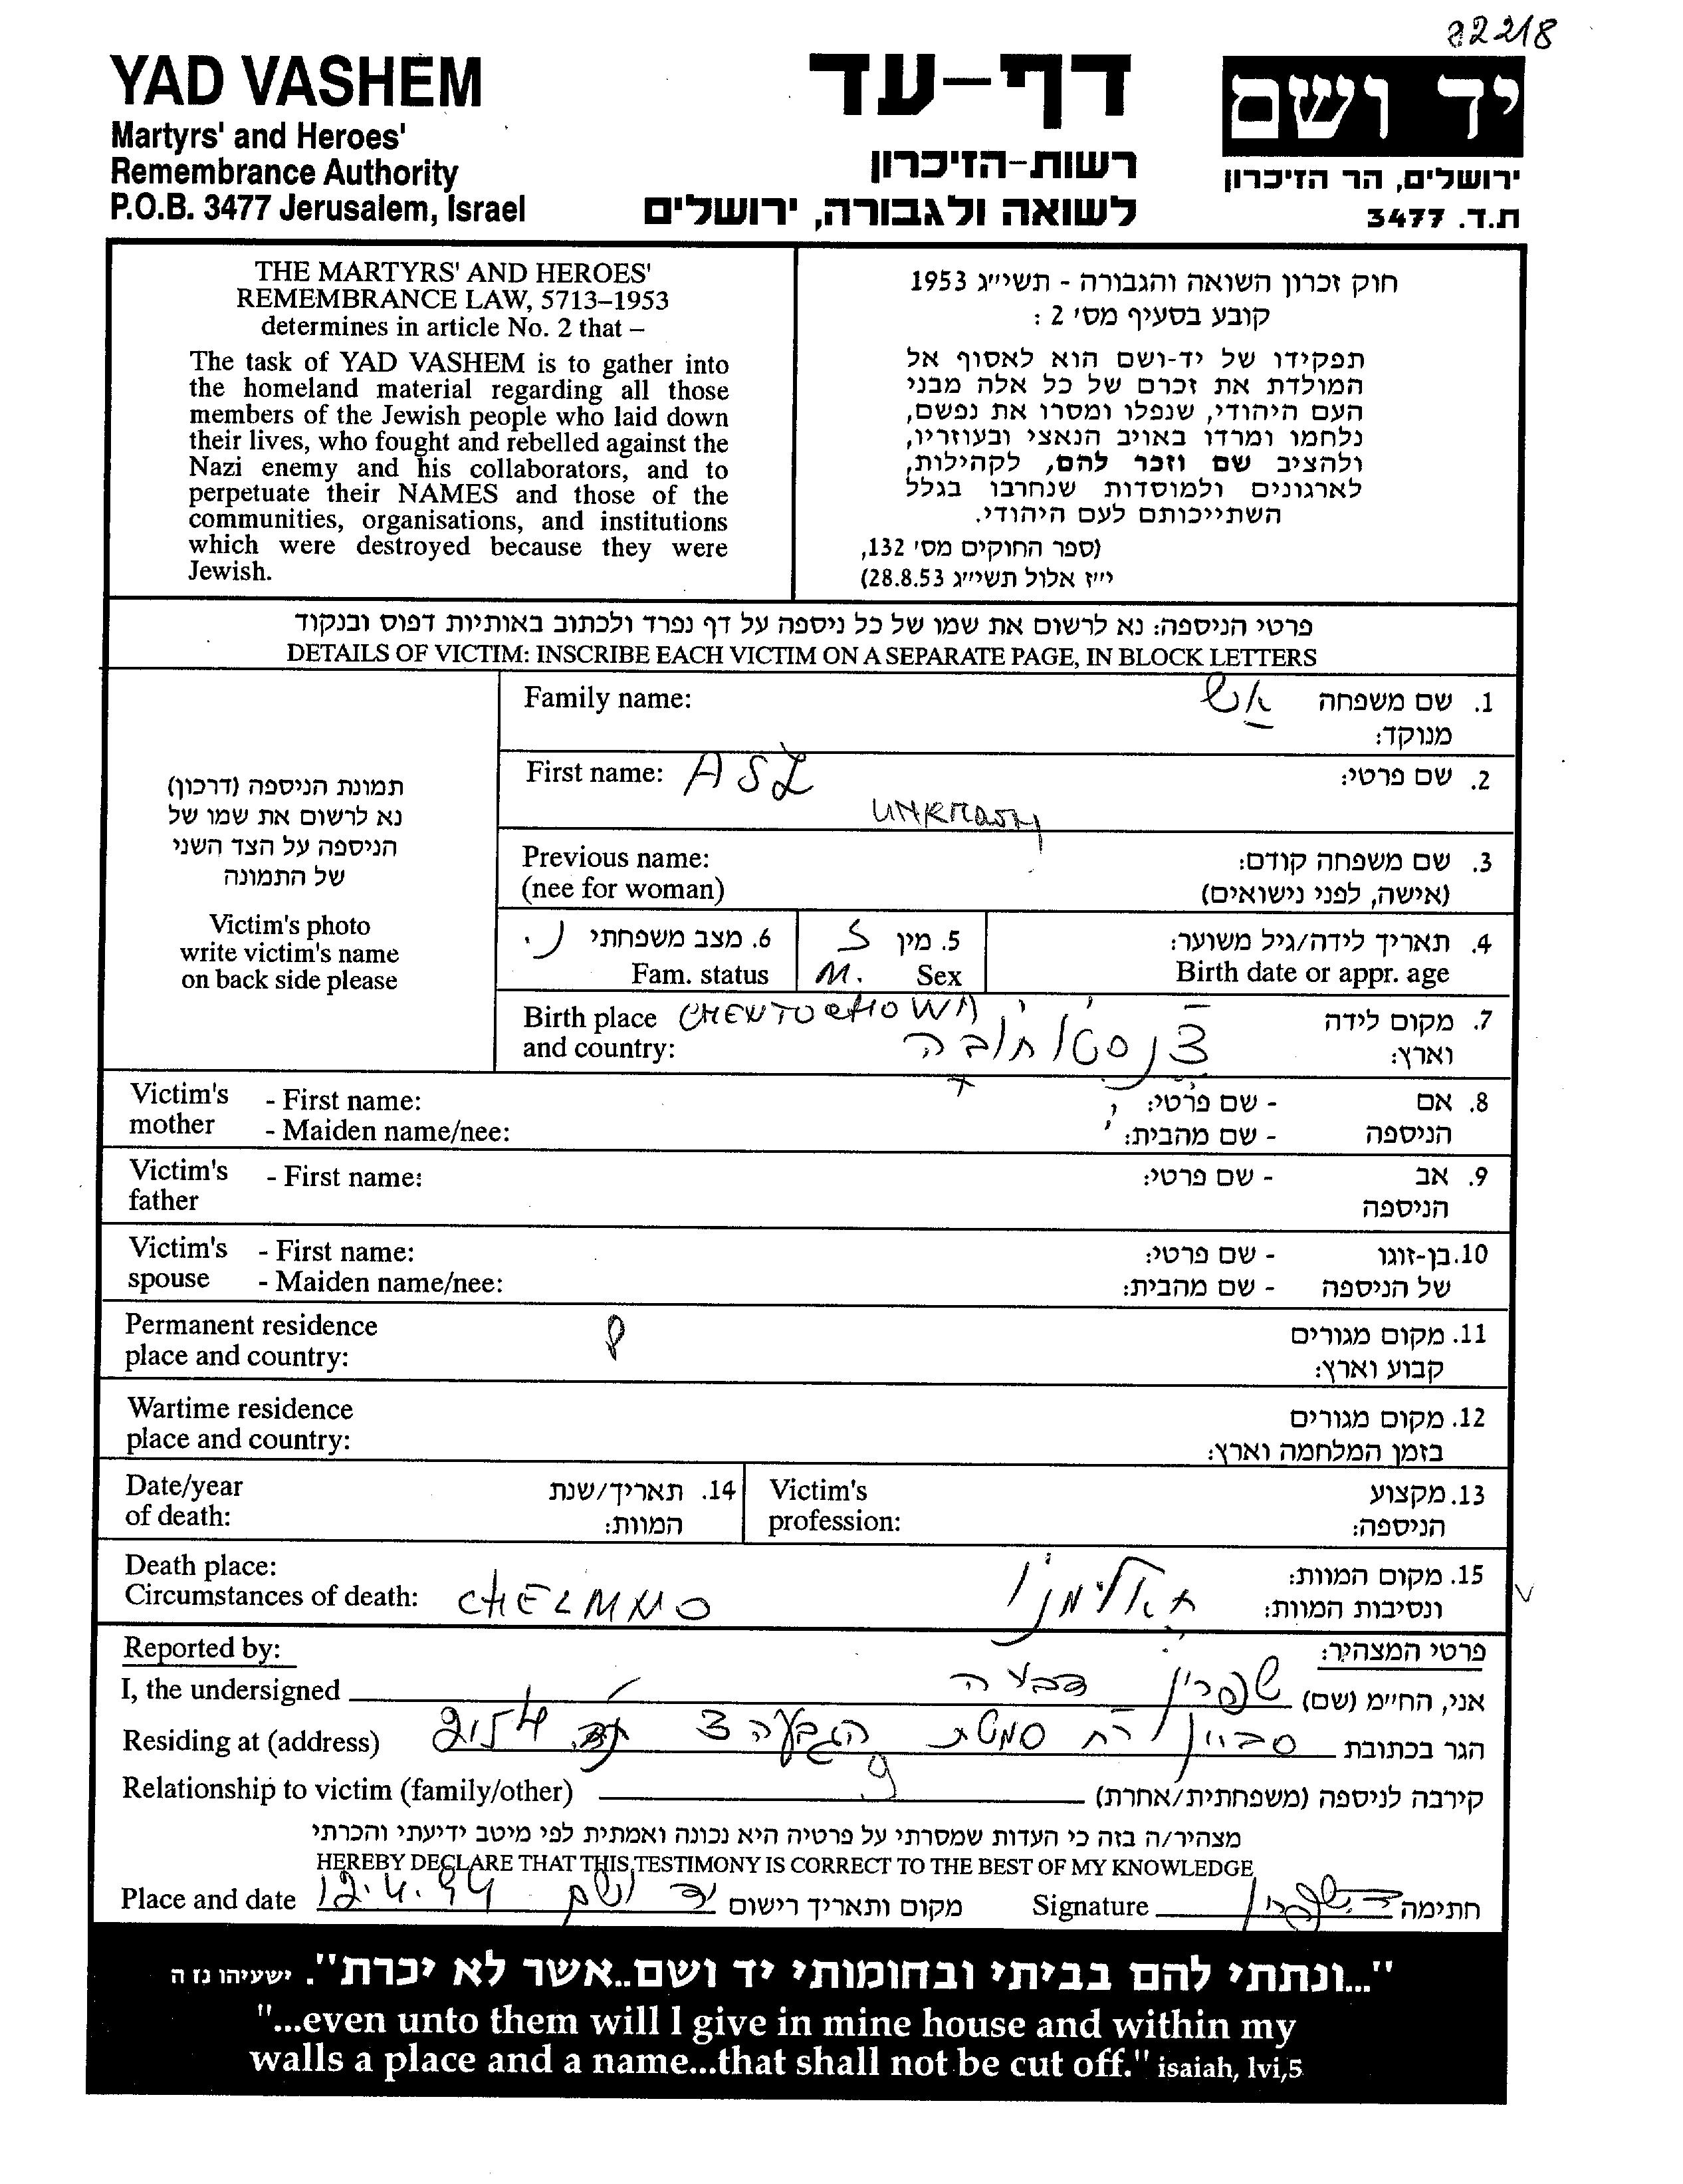 82218
YAD VASHEM
Martyrs' and Heroes'
Remembrance Authority
P.O.B. 3477 Jerusalem, Israel
דף-עד
רשות-הזיכרון
לשואה ולגבורה, ירושלים
יד ושם
ירושלים, הר הזיכרון
ת.ד. 3477
THE MARTYRS' AND HEROES'
REMEMBRANCE LAW, 5713–1953
determines in article No. 2 that –
The task of YAD VASHEM is to gather into
the homeland material regarding all those
members of the Jewish people who laid down
their lives, who fought and rebelled against the
Nazi enemy and his collaborators, and to
perpetuate their NAMES and those of the
communities, organisations, and institutions
which were destroyed because they were
Jewish.
חוק זכרון השואה והגבורה - תשי״ג 1953
קובע בסעיף מס׳ 2 :
תפקידו של יד-ושם הוא לאסוף אל
המולדת את זכרם של כל אלה מבני
העם היהודי, שנפלו ומסרו את נפשם,
נלחמו ומרדו באויב הנאצי ובעוזריו,
ולהציב שם וזכר להם, לקהילות,
לארגונים ולמוסדות שנחרבו בגלל
השתייכותם לעם היהודי.
(ספר החוקים מס׳ 132,
י״ז אלול תשי״ג 28.8.53)
פרטי הניספה: נא לרשום את שמו של כל ניספה על דף נפרד ולכתוב באותיות דפוס ובנקוד
DETAILS OF VICTIM: INSCRIBE EACH VICTIM ON A SEPARATE PAGE, IN BLOCK LETTERS
תמונת הניספה (דרכון)
נא לרשום את שמו של
הניספה על הצד השני
של התמונה
Victim's photo
write victim's name
on back side please
Family name: אש 1. שם משפחה
מנוקד:
First name: ASZ 2. שם פרטי:
UNKNOWN
Previous name: 3. שם משפחה קודם:
(nee for woman) (אישה, לפני נישואים)
4. תאריך לידה/גיל משוער:
Birth date or appr. age
5. מין ז
M. Sex
6. מצב משפחתי נ.
Fam. status
Birth place CHENTOCHOWA 7. מקום לידה
and country: צ'נסטוחובה וארץ:
Victim's - First name: - שם פרטי: 8. אם
mother - Maiden name/nee: - שם מהבית: הניספה
Victim's - First name: - שם פרטי: 9. אב
father הניספה
Victim's - First name: - שם פרטי: 10. בן-זוגו
spouse - Maiden name/nee: - שם מהבית: של הניספה
Permanent residence 11. מקום מגורים
place and country: קבוע וארץ:
Wartime residence 12. מקום מגורים
place and country: בזמן המלחמה וארץ:
Date/year 14. תאריך/שנת
of death: המוות:
Victim's 13. מקצוע
profession: הניספה:
Death place: 15. מקום המוות:
Circumstances of death: CHELMNO ונסיבות המוות:
Reported by: פרטי המצהיר:
I, the undersigned שפרין אני, החי״מ (שם)
Residing at (address) סביון רח סמטת הגבעה 3 הגר בכתובת
Relationship to victim (family/other) קירבה לניספה (משפחתית/אחרת)
מצהיר/ה בזה כי העדות שמסרתי על פרטיה היא נכונה ואמתית לפי מיטב ידיעתי והכרתי
HEREBY DECLARE THAT THIS TESTIMONY IS CORRECT TO THE BEST OF MY KNOWLEDGE
Place and date 12.4.94 יד ושם מקום ותאריך רישום Signature חתימה
"...ונתתי להם בביתי ובחומותי יד ושם..אשר לא יכרת". ישעיהו נז ה
"...even unto them will I give in mine house and within my
walls a place and a name...that shall not be cut off." isaiah, lvi,5